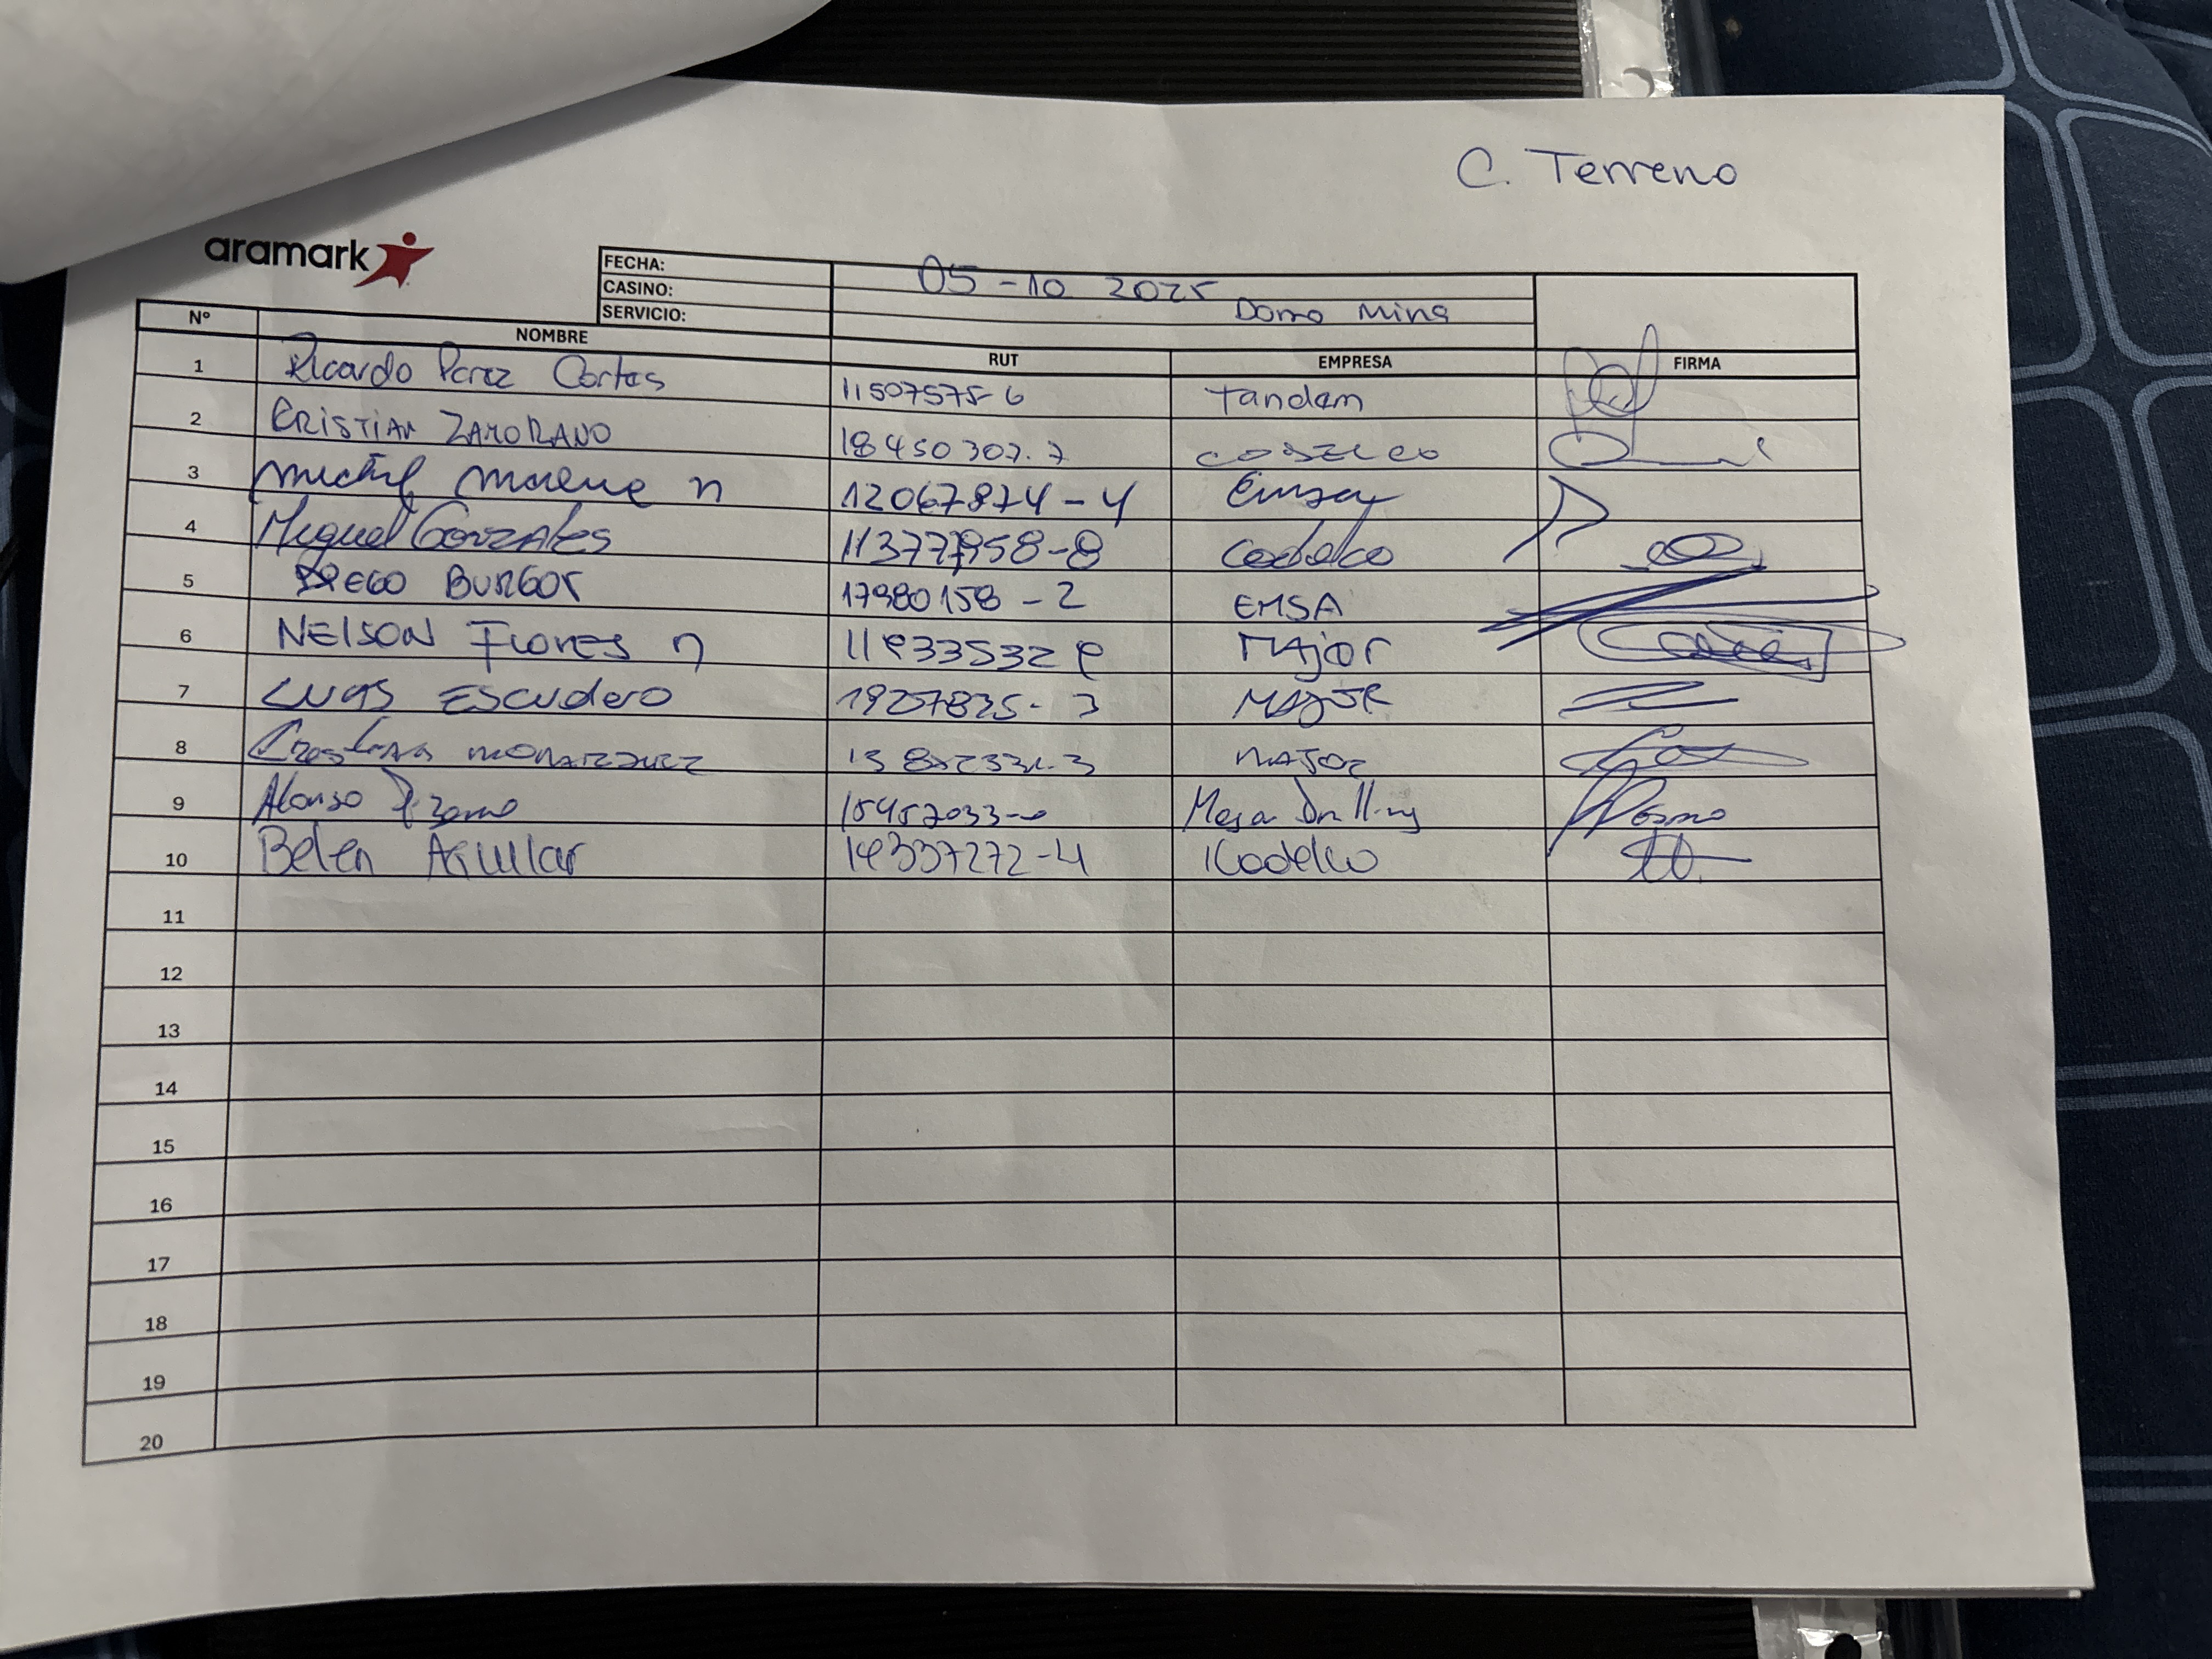 C. Terreno
aramark
FECHA: 05-10 2025
CASINO:
SERVICIO: Domo Mina
Nº NOMBRE RUT EMPRESA FIRMA
1 Ricardo Perez Cortes 11507575-6 Tandem
2 CRISTIAN ZAMORANO 18450307.7 CODELCO
3 Moreno n 12067874-4
4 Miguel GONZAles 11377958-8 Codelco
5 DIEGO BURGOS 17980158-2 EMSA
6 NELSON FLORES n MAJOR
7 LUCAS ESCUDERO MAJOR
8 MAJOR
9 Alonso Major Drilling
10 Belen Aguilar Codelco
11
12
13
14
15
16
17
18
19
20